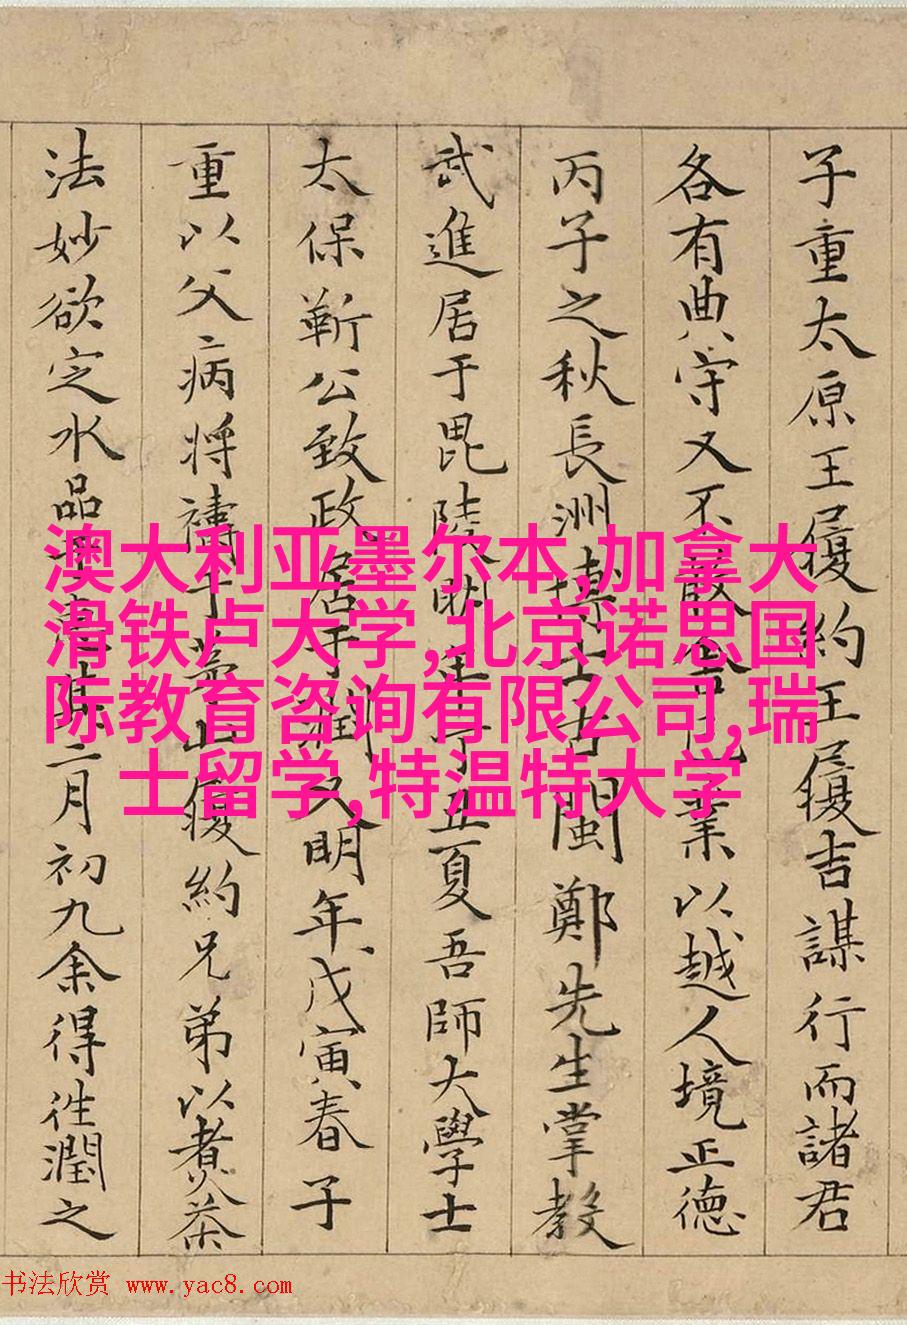 子重太原王履約王履吉謀行而諸君
各有典守又不
業以越人境正德
丙子之秋長洲博士古閩鄭先生掌教
武進居于毘陵明年丁丑夏吾師大學士
太保靳公致政居于潤又明年戊寅春子
重以父病將禱于茅山復約兄弟以煮茶
法妙欲定水品
二月初九余得往潤之
澳大利亚墨尔本,加拿大
滑铁卢大学,北京诺思国
际教育咨询有限公司,瑞
士留学,特温特大学
书法欣赏 www.yac8.com